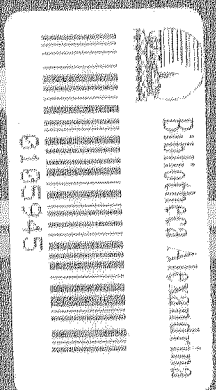 Bibliotheca Alexandrina
0185945